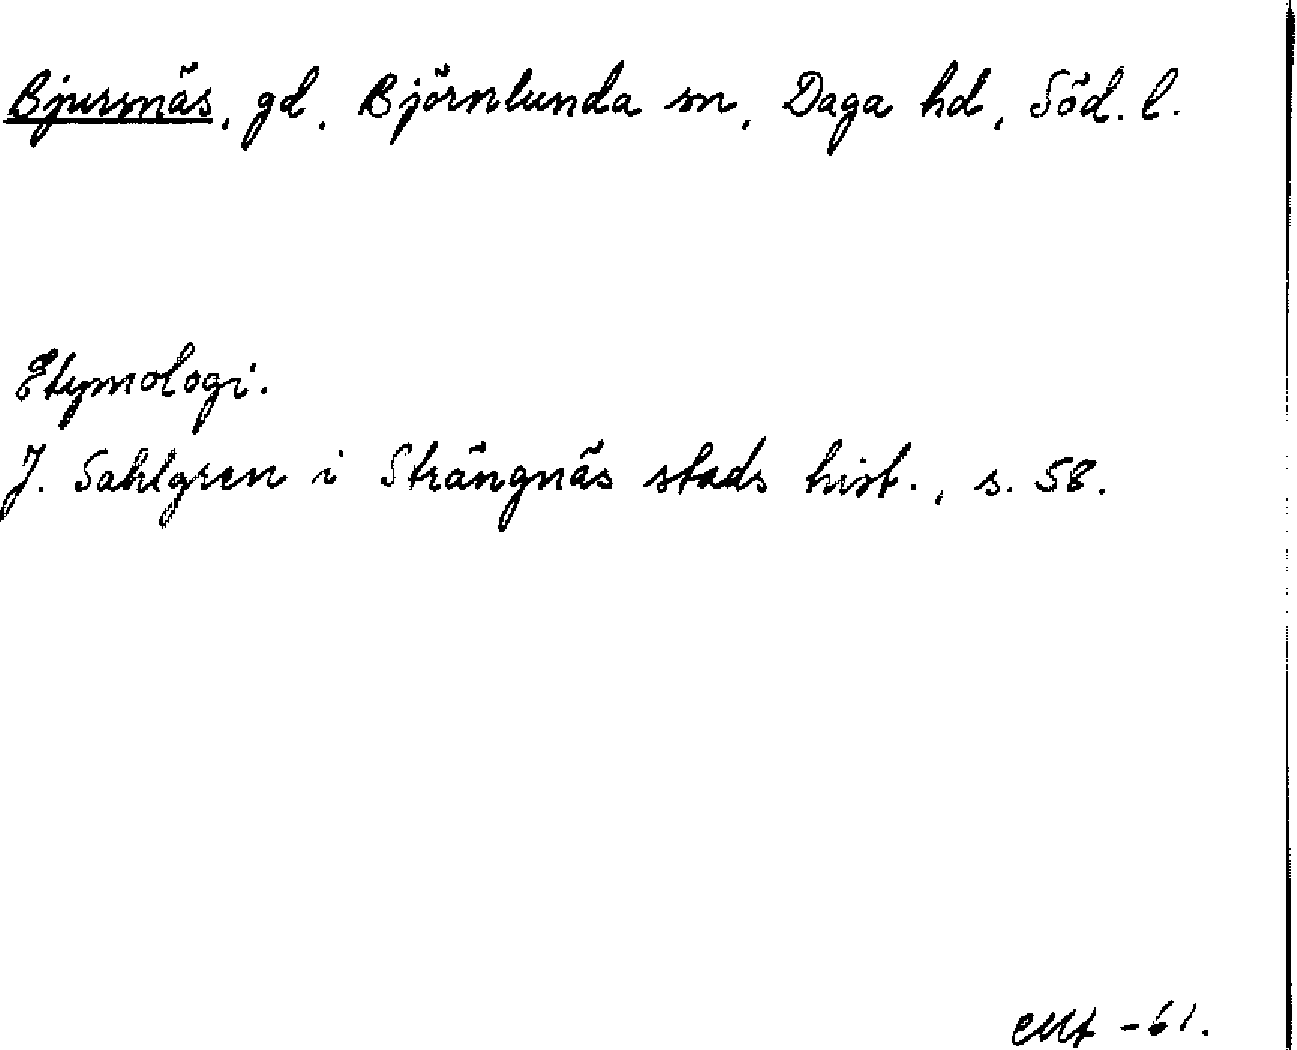 Bjursnäs, gd, Björnlunda sn, Daga hd, Söd. l.
Etymologi.
J. Sahlgren i Strängnäs stads hist., s. 58.
-61.